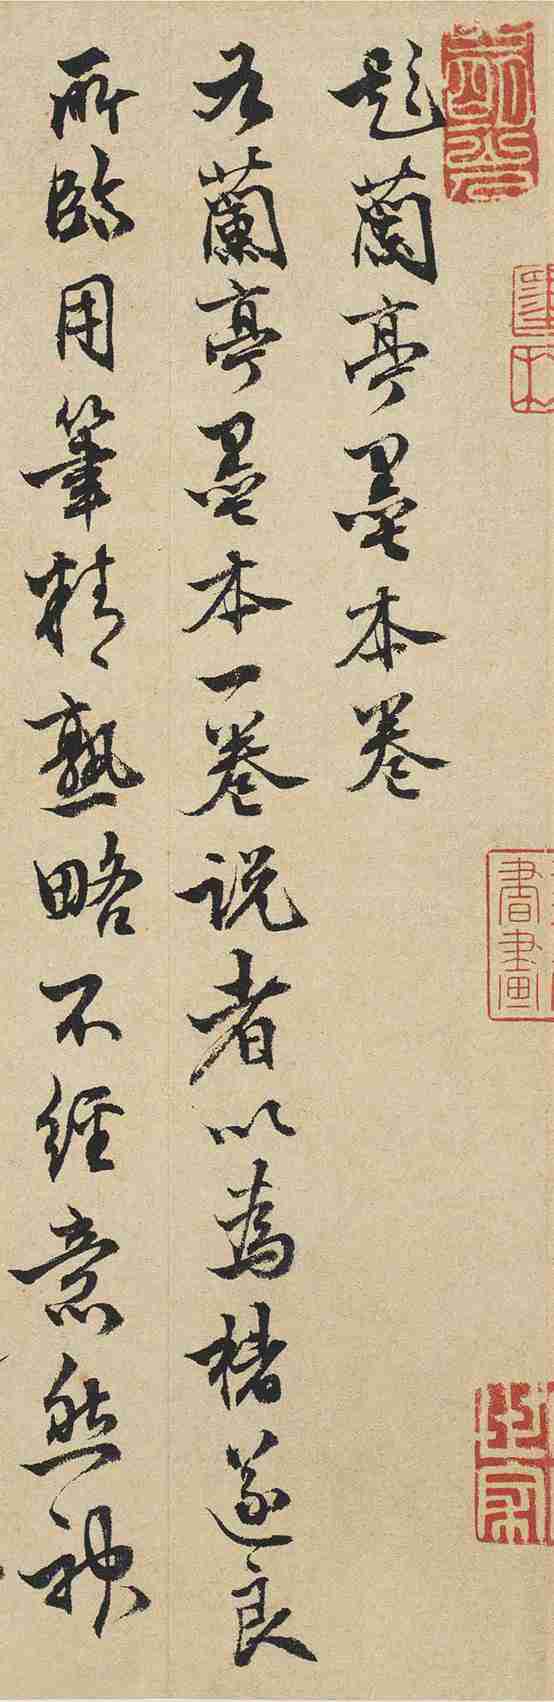 題蘭亭墨本卷
右蘭亭墨本一卷説者以為褚遂良
所臨用筆精熟略不經意然神
書畫